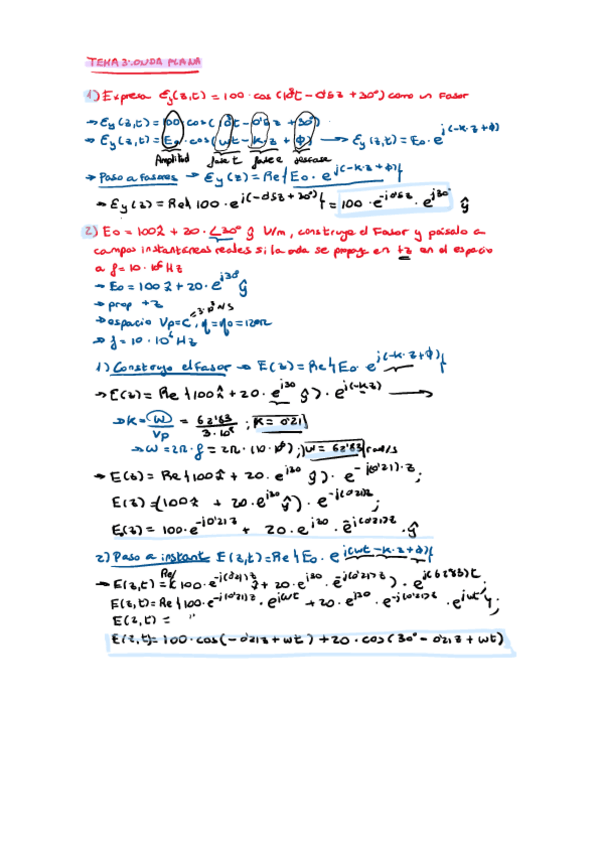 TEMA 3: ONDA PLANA
1) Expresa Ey(z,t) = 100·cos(10⁸t - 0'5z + 30°) como un fasor
→ Ey(z,t) = 100·cos(10⁸t - 0'5z + 30°)
→ Ey(z,t) = E₀·cos(ωt - k·z + ϕ) → Ey(z,t) = E₀·e^j(-k·z+ϕ)
Amplitud fase t fase z desfase
→ Paso a fasores → Ey(z) = Re{E₀·e^j(-k·z+ϕ)}
→ Ey(z) = Re{100·e^j(-0'5z+30°)} = 100·e^-j0'5z · e^j30° ŷ
2) E₀ = 100x̂ + 20·∠30° ŷ V/m, construye el Fasor y pásalo a
campos instantáneos reales si la onda se propaga en +z en el espacio
a f = 10·10⁶ Hz
→ E₀ = 100x̂ + 20·e^j30° ŷ
→ prop +z
→ espacio Vp=C, η=η₀=120π
→ f = 10·10⁶ Hz
1) Construyo el fasor → E(z) = Re{E₀·e^j(-k·z+ϕ)}
→ E(z) = Re{100x̂ + 20·e^j30 ŷ}·e^j(-kz) →
→ k = ω/Vp = 62'83/3·10⁸; k = 0'21
→ ω = 2π·f = 2π·(10·10⁶); ω = 62'83 rad/s
→ E(z) = Re{100x̂ + 20·e^j30 ŷ)·e^-j(0'21)·z;
E(z) = (100x̂ + 20·e^j30 ŷ)·e^-j(0'21)z;
E(z) = 100·e^-j0'21z + 20·e^j30·e^-j(0'21)z·ŷ
2) Paso a instant E(z,t) = Re{E₀·e^j(ωt-k·z+ϕ)}
→ E(z,t) = Re{100·e^-j(0'21)z x̂ + 20·e^j30·e^-j(0'21)z)·e^j(62'83)t;
E(z,t) = Re{100·e^-j(0'21)z·e^jωt + 20·e^j30·e^-j(0'21)z·e^jωt};
E(z,t) = "
E(z,t) = 100·cos(-0'21z + ωt) + 20·cos(30° - 0'21z + ωt)